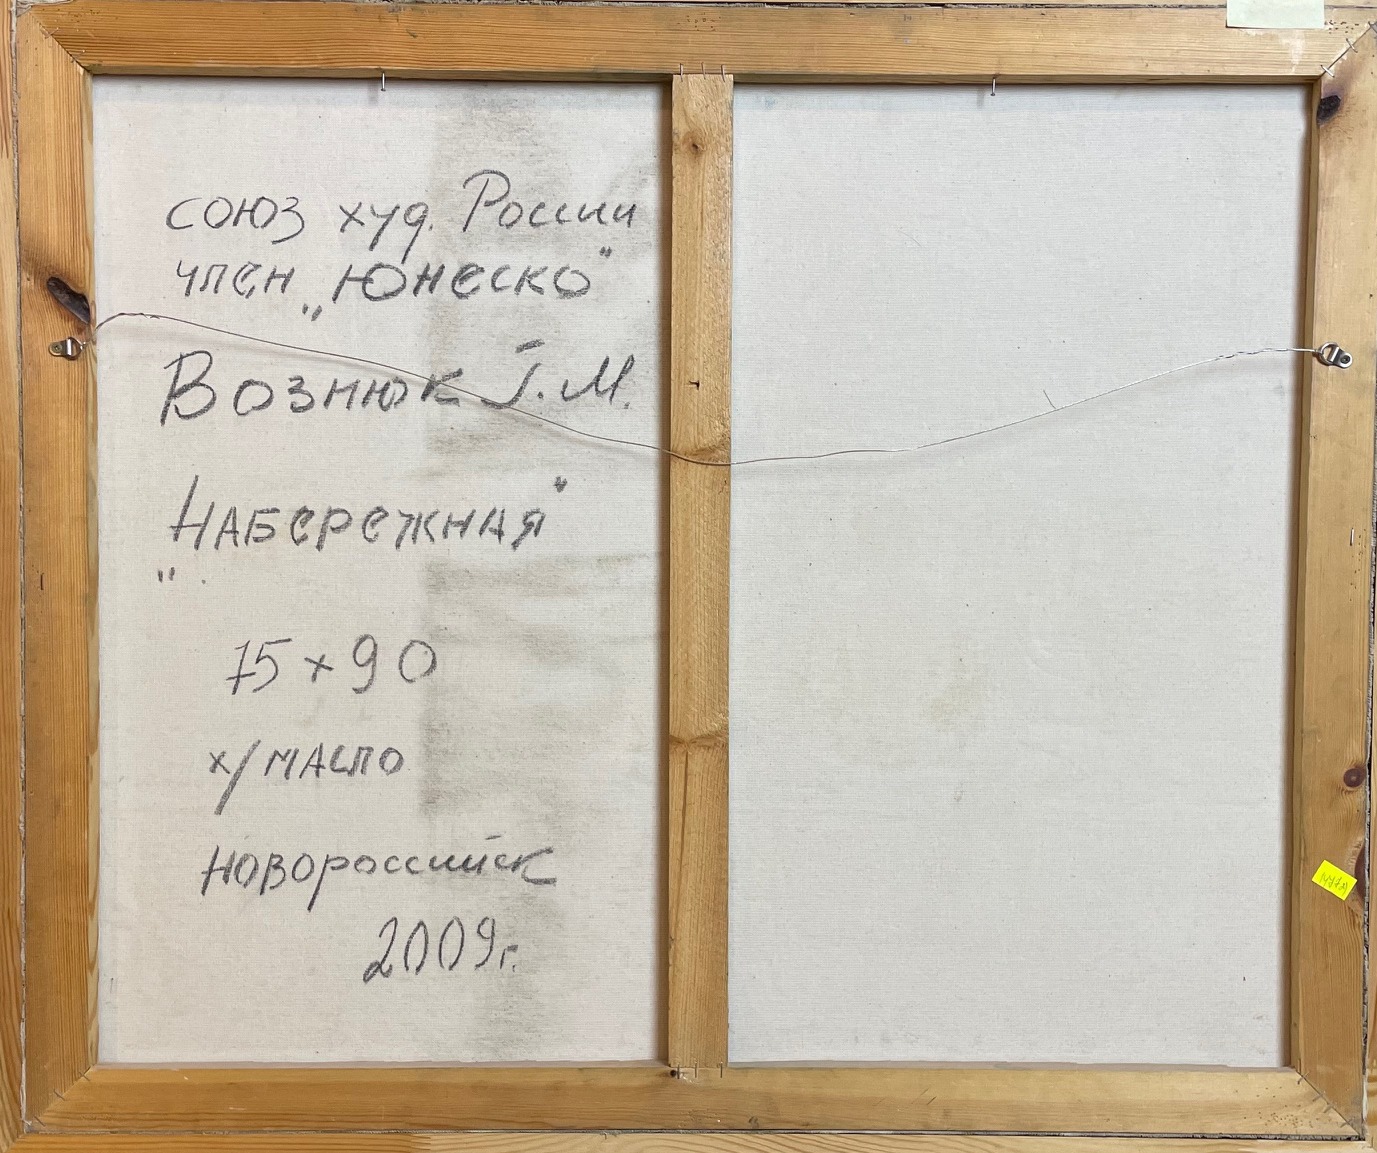 союз худ. России
член „Юнеско"
Вознюк Г. М.
„Набережная"
75 x 90
х/масло
новороссийск
2009г.